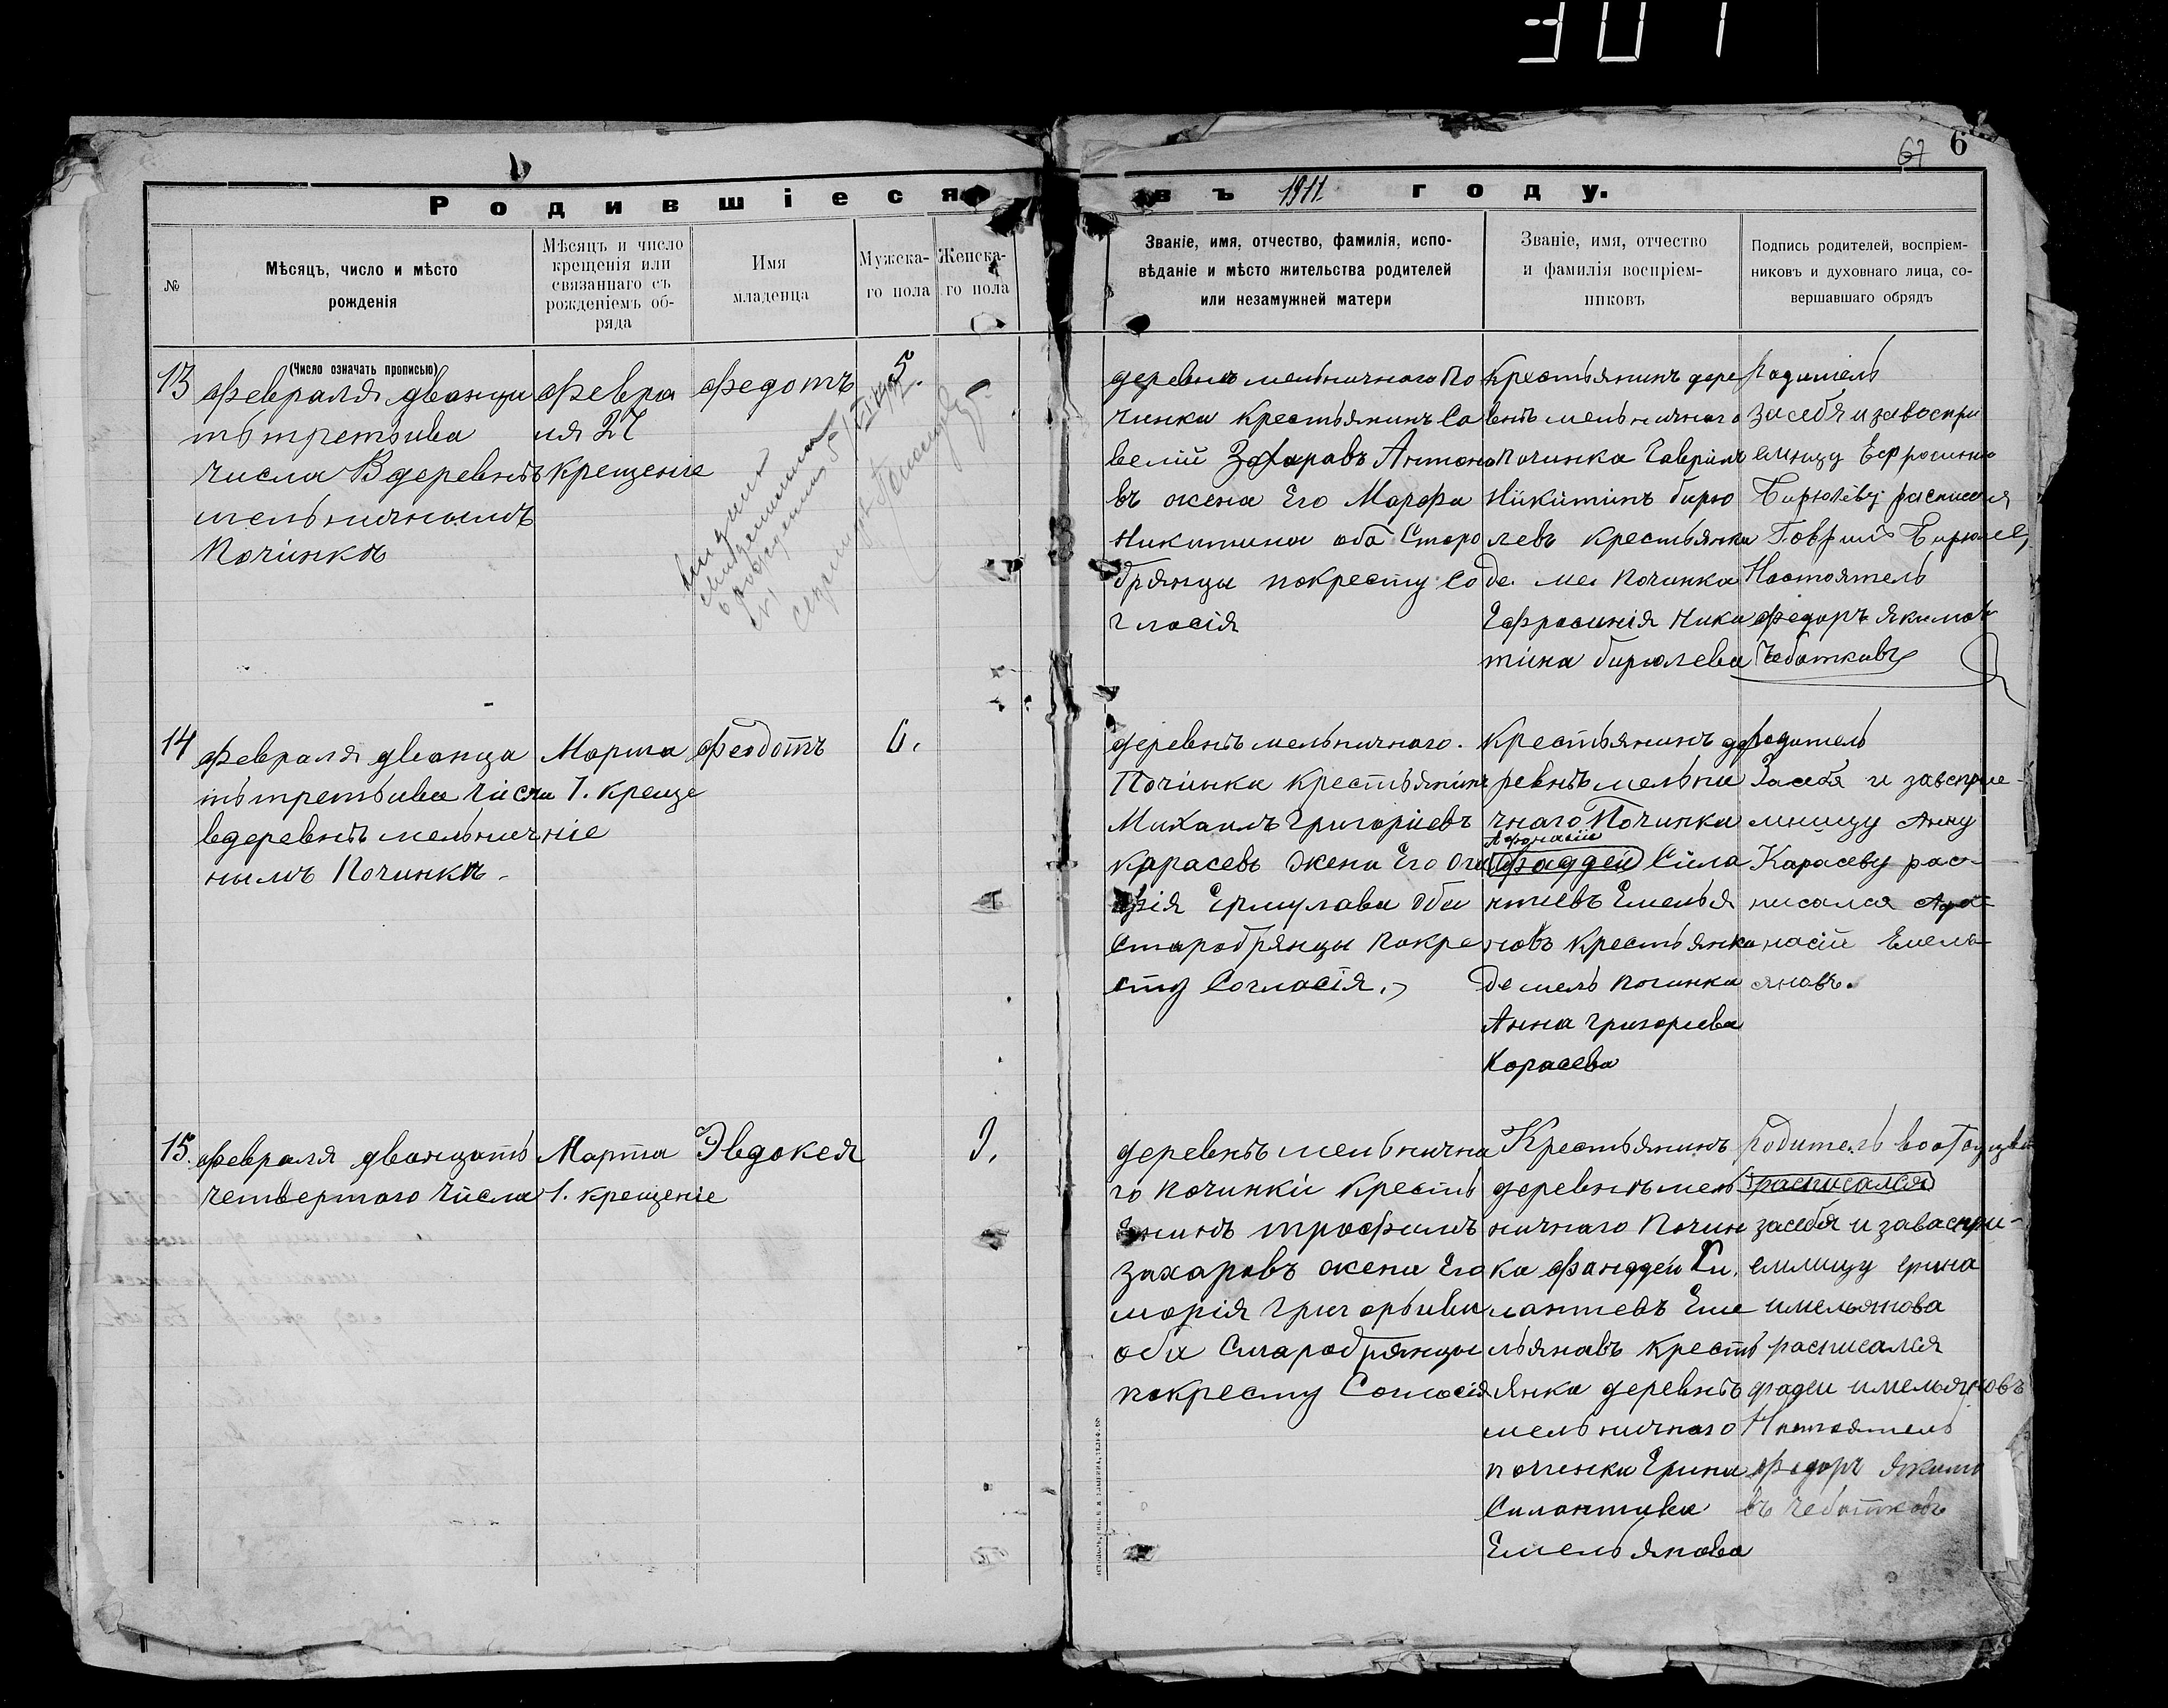 307
67 6
Родившіеся въ 1911 году.
№
Мѣсяцъ, число и мѣсто
рожденія
Мѣсяцъ и число
крещенія или
связаннаго съ
рожденіемъ об-
ряда
Имя
младенца
Мужска-
го пола
Женска-
го пола
Званіе, имя, отчество, фамилія, испо-
вѣданіе и мѣсто жительства родителей
или незамужней матери
Званіе, имя, отчество
и фамилія воспріем-
никовъ
Подпись родителей, воспріем-
никовъ и духовнаго лица, со-
вершавшаго обрядъ
(Число означать прописью)
13
февраля дванца
ть третьива
числа В деревнѣ
мельничнымъ
Починкѣ
февра
ля 27
крещеніе
федотъ
5.
деревнѣ мельничного По
чинка крестьянинъ Са
велій Захаравъ Антоно
въ жена Его Марфа
Никитина оба Старо
брянцы покресту Со
гласія
Крестьянинъ дере
внѣ мельничнаго
Починка Гаврилъ
Никитинъ бирю
левъ крестьянка
де. мел Починка
Ефросинія Ники
тина бирюлева
Родитель
за себя и завоспри
емницу Ефросинию
Бирюлеву расписался
Гаврилъ Бирюлев
Настоятель
федоръ якимовъ
Чеботковъ
14
февраля дванца
ть третьива числа
вдеревнѣ мельнич
нымъ Починкѣ.
Марта
1. креще
ніе
феодотъ
6.
деревнѣ мельничного.
Починка крестьянинъ
Михаилъ Григориевъ
карасевъ жена Его Ога
фія Ермулава Оба
Старобрянцы покре
сту Согласія.
крестьянинъ де
ревнѣ мельни
чнаго Починка
Афонасіи
фаддей Сила
нтиевъ Емелья
новъ крестьянка
де мель починка
Анна григориева
Корасева
Родитель
За себя и завсприе-
мницу Анну
Карасеву рас-
писался Афо-
насій Емель-
яновъ.
15.
февраля дванцать
четвертого числа
Марта
1. крещеніе
Эвдокея
9.
деревнѣ мельнична
го починкі кресть
янинъ трофимъ
захаровъ жена Его
марія григорьива
оба Старобрянцы
покресту Согласія
Крестьянинъ
деревнѣ мел
ничнаго Почин
ка фанддей Си.
лантевъ Еме
льянавъ кресть
янка деревнѣ
мельничнаго
починка Ерина
Силантива
Емельянова
родитель
расписался
за себя и заваспри-
емницу ерина
имельянова
расписался
фадеи имельяновъ
Настоятель
федоръ якимо
въ чеботковъ